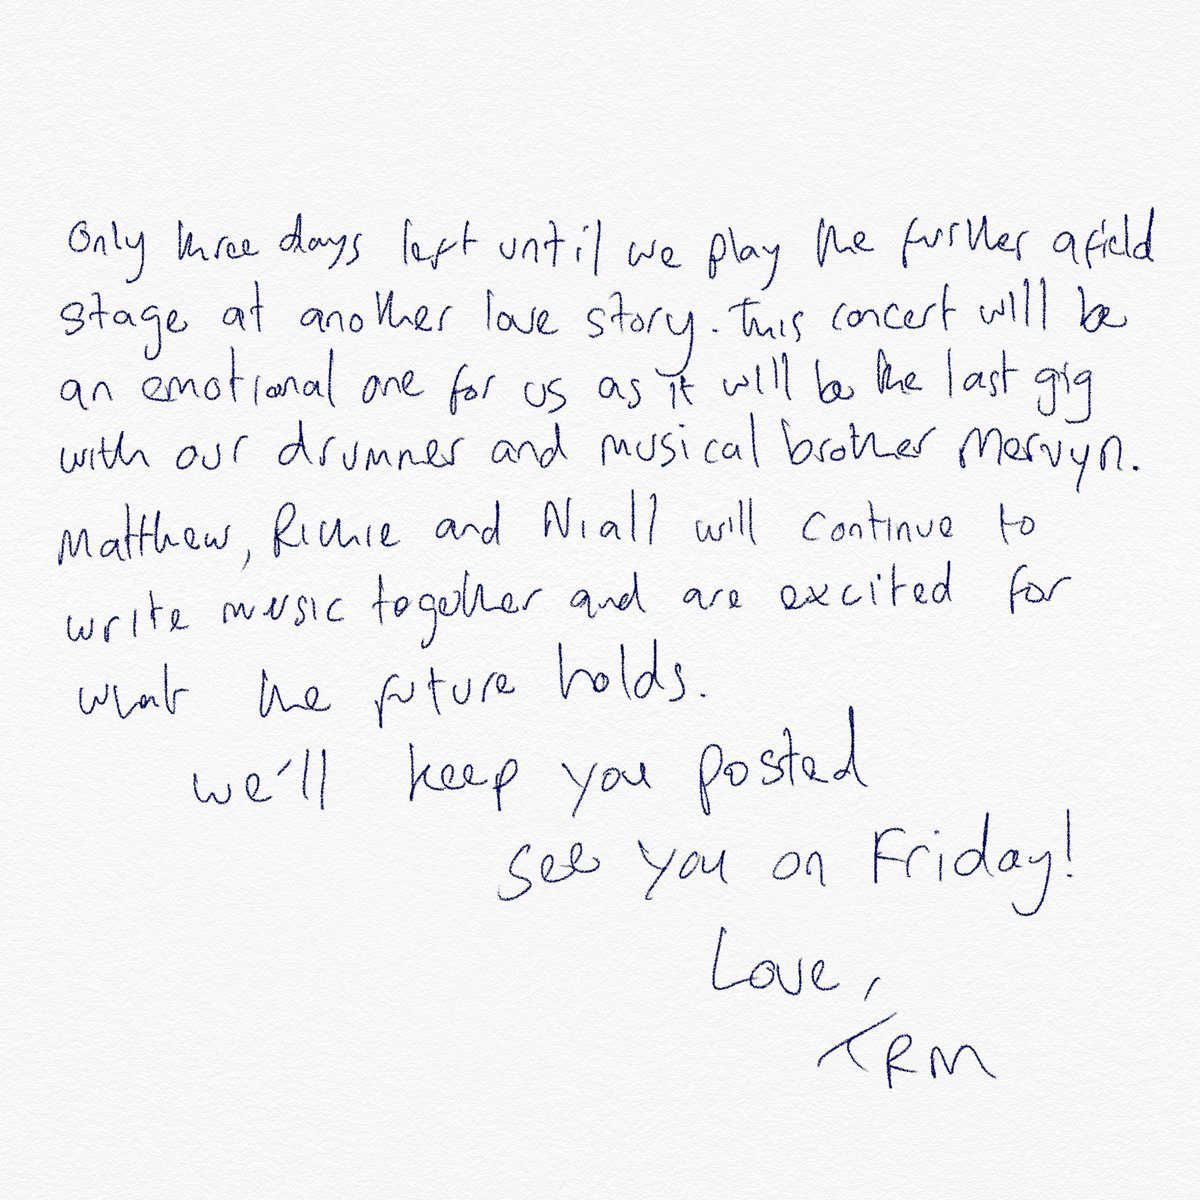 Only three days left until we play the further afield
stage at another love story. This concert will be
an emotional one for us as it will be the last gig
with our drummer and musical brother Mervyn.
Matthew, Richie and Niall will continue to
write music together and are excited for
what the future holds.
we'll keep you posted
see you on Friday!
Love,
TRM